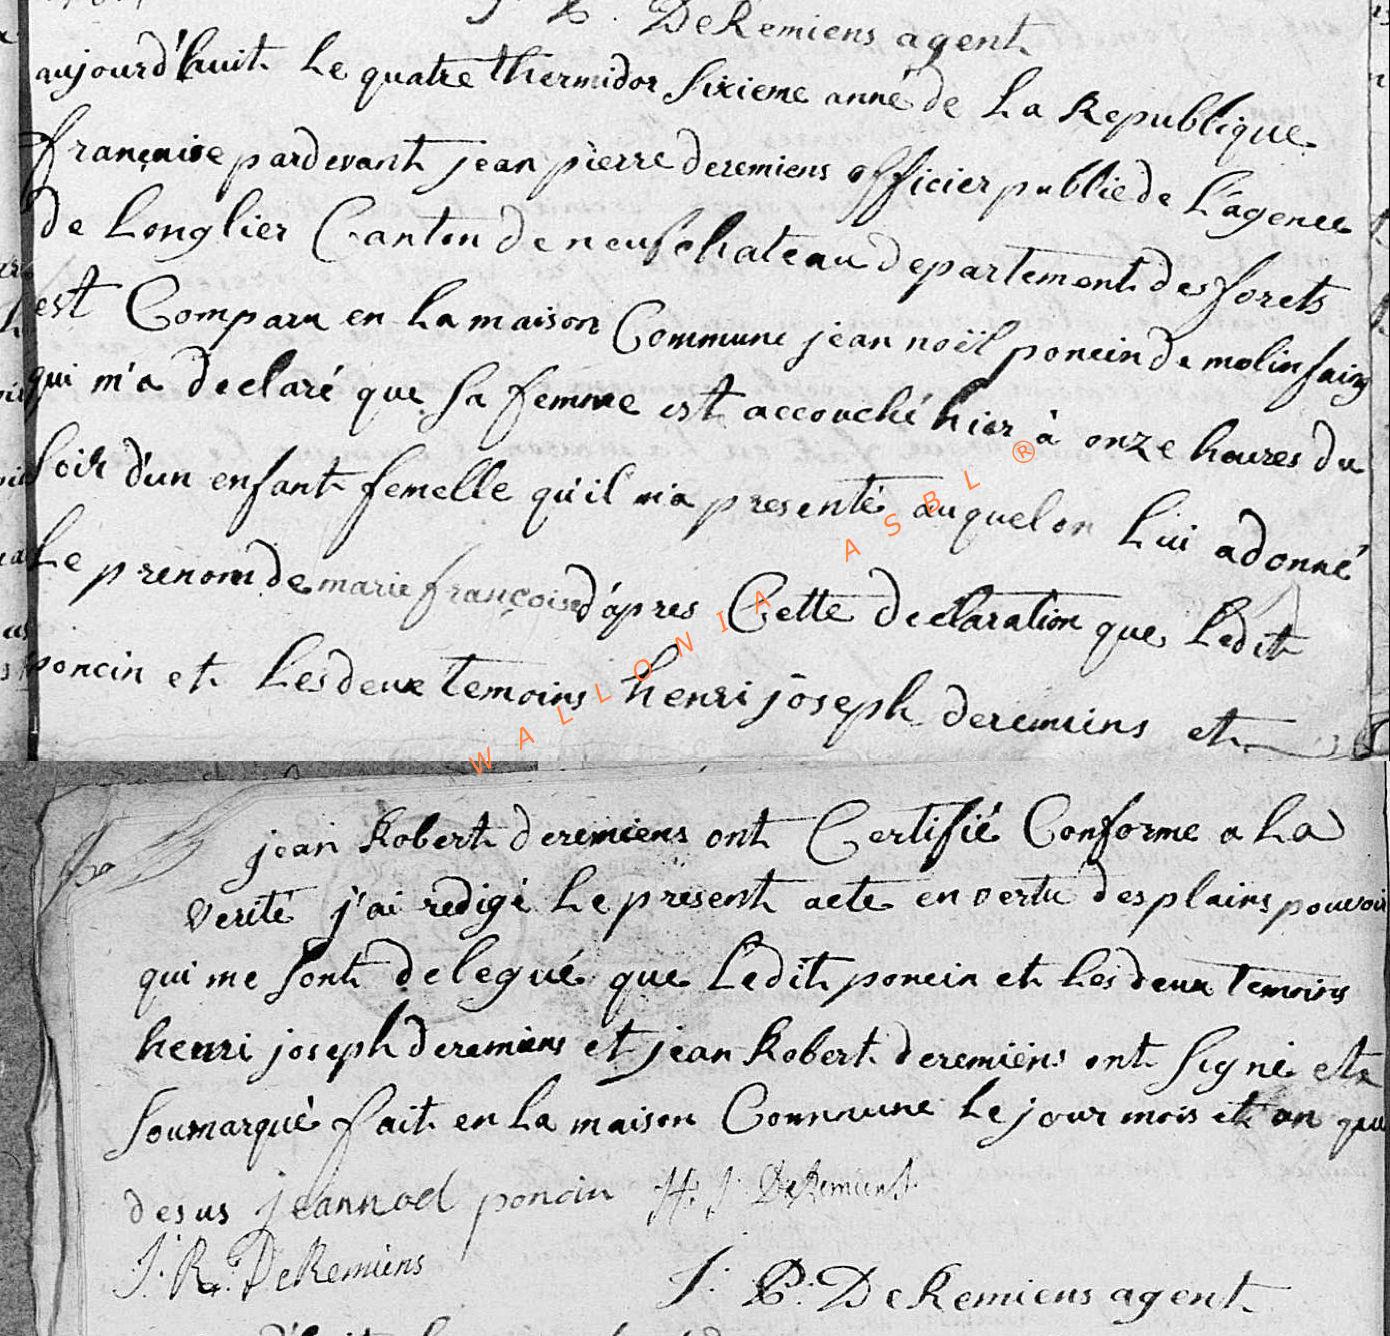 J. P. DeRemiens agent
aujourd'huit le quatre thermidor sixieme anné de la Republique
françaive pardevant jean pierre deremiens officier publie de l'agence
de longlier Canton de neufchateau departement des forets
est Comparu en la maison Commune jean noël poncin de molinfaing
qui m'a declaré que sa femme est accouché hier à onze heures du
soir d'un enfant femelle qu'il m'a presenté auquel on lui a donné
le prenom de marie françoise d'apres Cette declaration que ledit
poncin et les deux temoins henri joseph deremiens et
jean Robert deremiens ont Certifié Conforme a la
verité j'ai redigé le present acte en vertu des plains pouvoir
qui me sont delegué que ledit poncin et les deux temoins
henri joseph deremiens et jean Robert deremiens ont signé et
soumarqué fait en la maison Commune le jour mois et an que
desus jeannoel poncin H. J. DeRemiens
J. R. DeRemiens
J. P. DeRemiens agent
WALLONIA ASBL ®